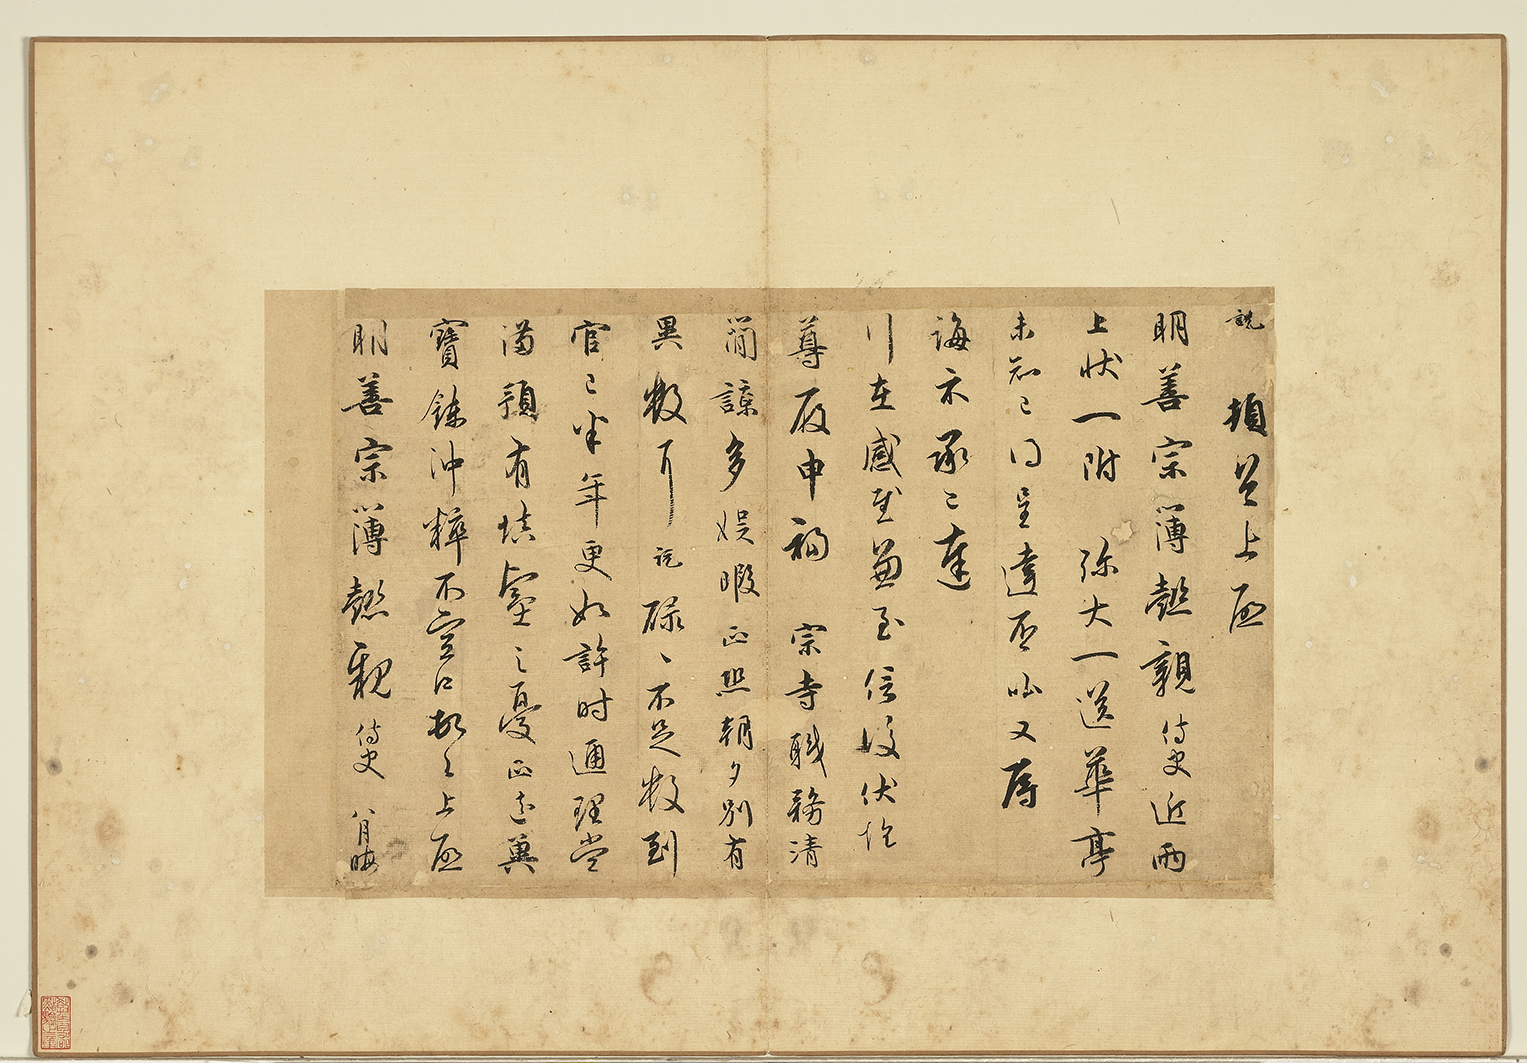 說 頓首上啟
明善宗簿懿親侍史近兩
上狀一附 弥大一送華亭
未知已得呈達否昨又辱
誨示承已達
行在感慰兼至信後伏惟
尊履申福 宗寺職務清
簡諒多娛暇正熙朝夕別有
異數耳說碌々不足數到
官已半年更如許時逋理當
滿預有填之憂正遠冀
寶鍊沖粹不宣說頓首上啟
明善宗簿懿親侍史 八月晦